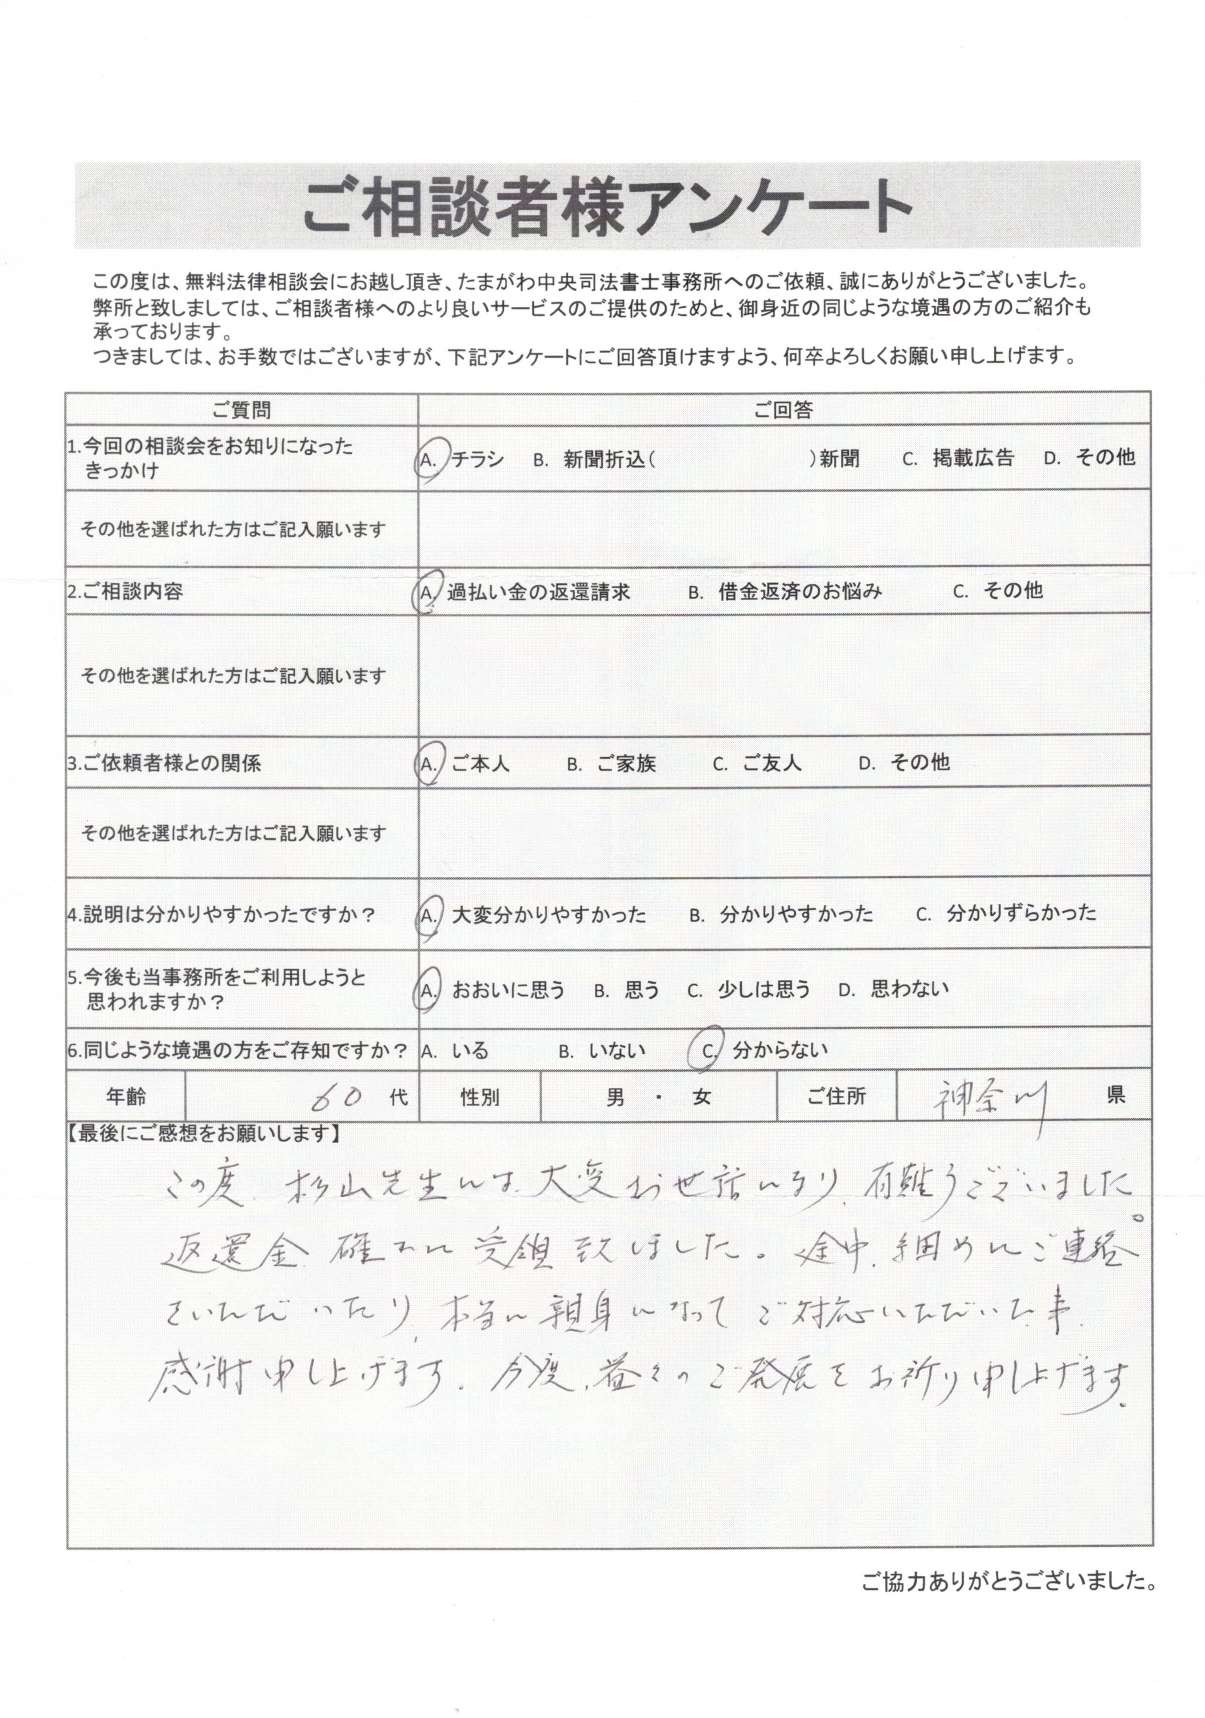 ご相談者様アンケート
この度は、無料法律相談会にお越し頂き、たまがわ中央司法書士事務所へのご依頼、誠にありがとうございました。
弊所と致しましては、ご相談者様へのより良いサービスのご提供のためと、御身近の同じような境遇の方のご紹介も
承っております。
つきましては、お手数ではございますが、下記アンケートにご回答頂けますよう、何卒よろしくお願い申し上げます。
ご質問 ご回答
1.今回の相談会をお知りになった
きっかけ
A. チラシ B. 新聞折込( )新聞 C. 掲載広告 D. その他
その他を選ばれた方はご記入願います
2.ご相談内容 A. 過払い金の返還請求 B. 借金返済のお悩み C. その他
その他を選ばれた方はご記入願います
3.ご依頼者様との関係 A. ご本人 B. ご家族 C. ご友人 D. その他
その他を選ばれた方はご記入願います
4.説明は分かりやすかったですか? A. 大変分かりやすかった B. 分かりやすかった C. 分かりずらかった
5.今後も当事務所をご利用しようと
思われますか?
A. おおいに思う B. 思う C. 少しは思う D. 思わない
6.同じような境遇の方をご存知ですか? A. いる B. いない C. 分からない
年齢 60 代 性別 男 ・ 女 ご住所 神奈川 県
【最後にご感想をお願いします】
この度、杉山先生には、大変お世話になり、有難うございました。
返還金、確かに受領致しました。途中、細めにご連絡
をいただいたり、本当に親身になってご対応いただいた事、
感謝申し上げます。今度、益々のご発展をお祈り申し上げます。
ご協力ありがとうございました。